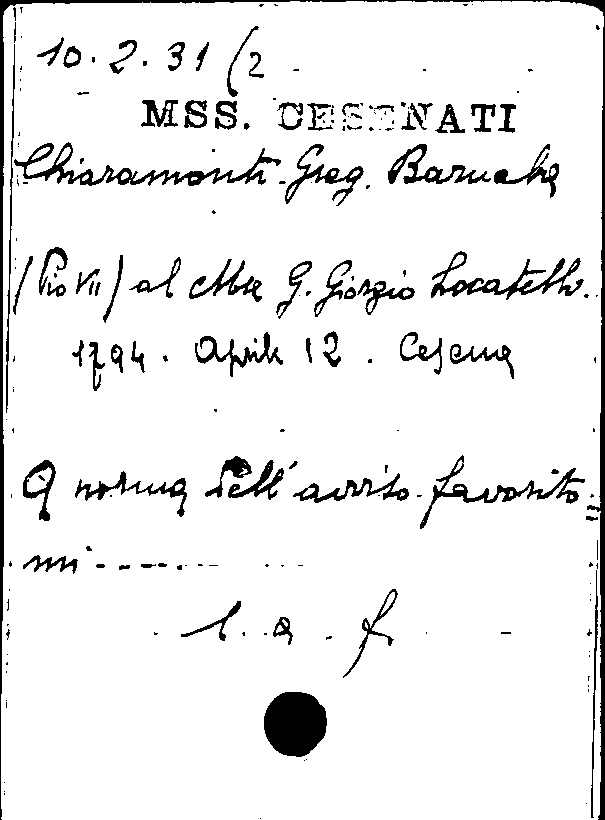 10.2.31 (2
MSS. CESENATI
Chiaramonti Greg. Barnaba
(Pio VII) al Mse G. Giorgio Locatelli.
1794. Aprile 12. Cesena
A norma dell'avviso favorito=
mi ------
l. a. f.